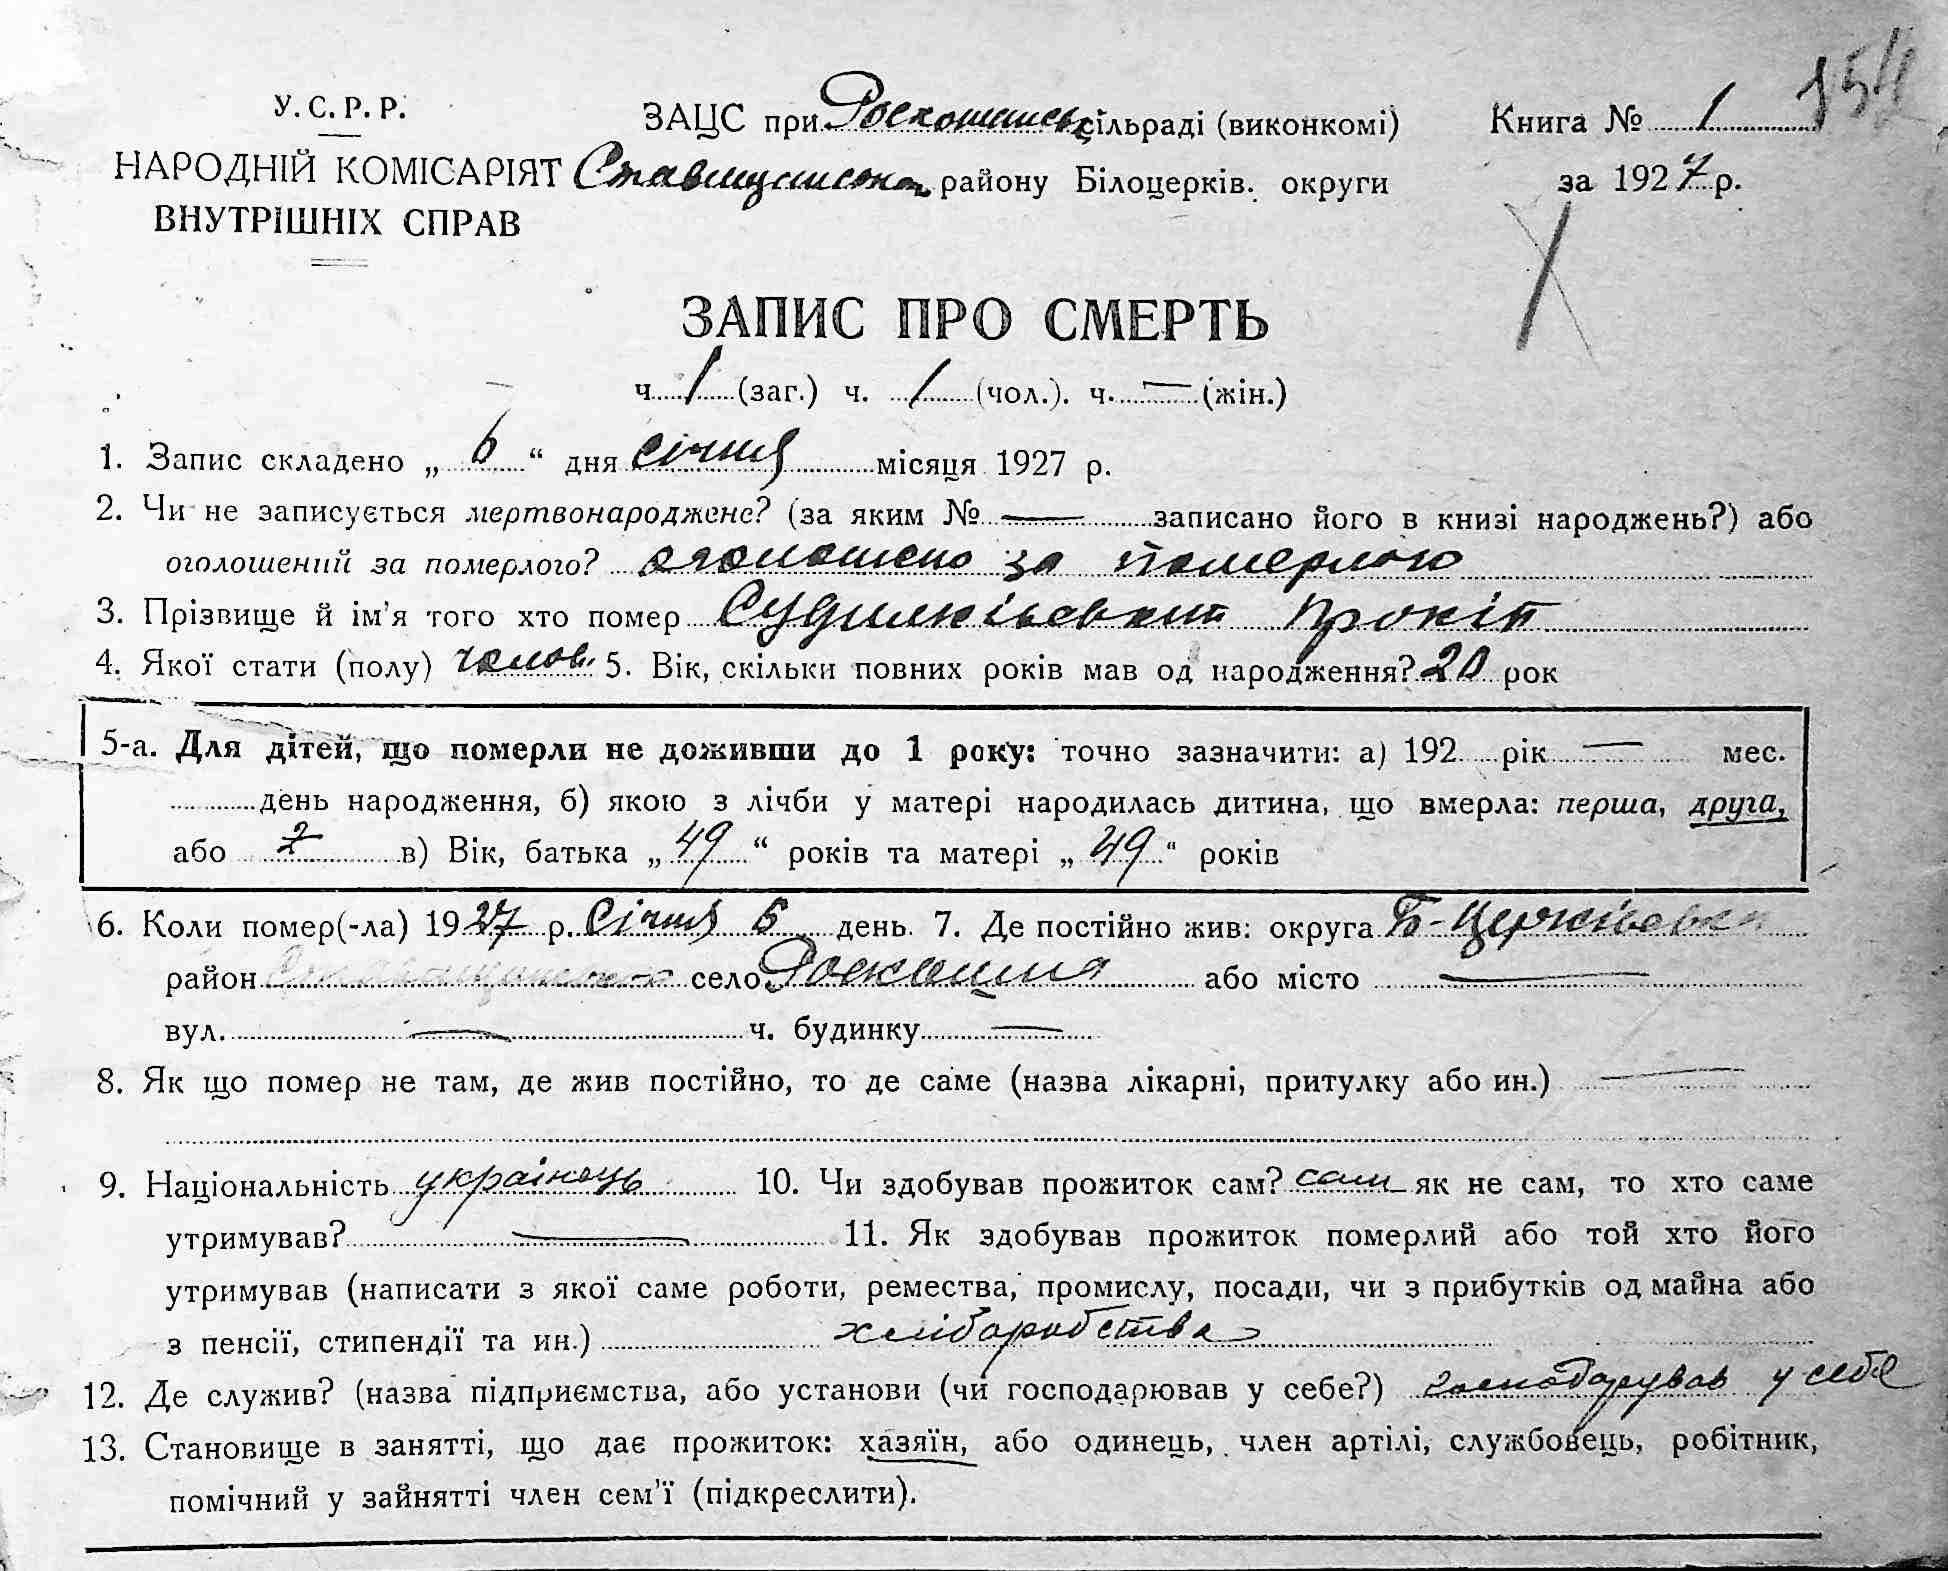 154
У. С. Р. Р.
НАРОДНІЙ КОМІСАРІЯТ
ВНУТРІШНІХ СПРАВ
ЗАЦС при Роскошинс. сільраді (виконкомі)
Ставищанського району Білоцерків. округи
Книга № 1
за 1927 р.
ЗАПИС ПРО СМЕРТЬ
ч. 1 (заг.) ч. 1 (чол.). ч. — (жін.)
1. Запис складено „ 6 “ дня січня місяця 1927 р.
2. Чи не записується мертвонароджене? (за яким № — записано його в книзі народжень?) або
оголошений за померлого? оголошено за померлого
3. Прізвище й ім'я того хто помер Судилківський Прокіп
4. Якої стати (полу) чолов. 5. Вік, скільки повних років мав од народження? 20 рок
5-а. Для дітей, що померли не доживши до 1 року: точно зазначити: а) 192 рік — мес.
день народження, б) якою з лічби у матері народилась дитина, що вмерла: перша, друга,
або 2 в) Вік, батька „ 49 “ років та матері „ 49 “ років
6. Коли помер(-ла) 1927 р. Січня 6 день. 7. Де постійно жив: округа Б-Церківська
район Ставищанського село Роскошна або місто —
вул. — ч. будинку —
8. Як що помер не там, де жив постійно, то де саме (назва лікарні, притулку або ин.) —
9. Національність українець 10. Чи здобував прожиток сам? сам як не сам, то хто саме
утримував? — 11. Як здобував прожиток померлий або той хто його
утримував (написати з якої саме роботи, ремества, промислу, посади, чи з прибутків од майна або
з пенсії, стипендії та ин.) хліборобства
12. Де служив? (назва підприємства, або установи (чи господарював у себе?) господарував у себе
13. Становище в занятті, що дає прожиток: хазяїн, або одинець, член артілі, службовець, робітник,
помічний у зайнятті член сем'ї (підкреслити).